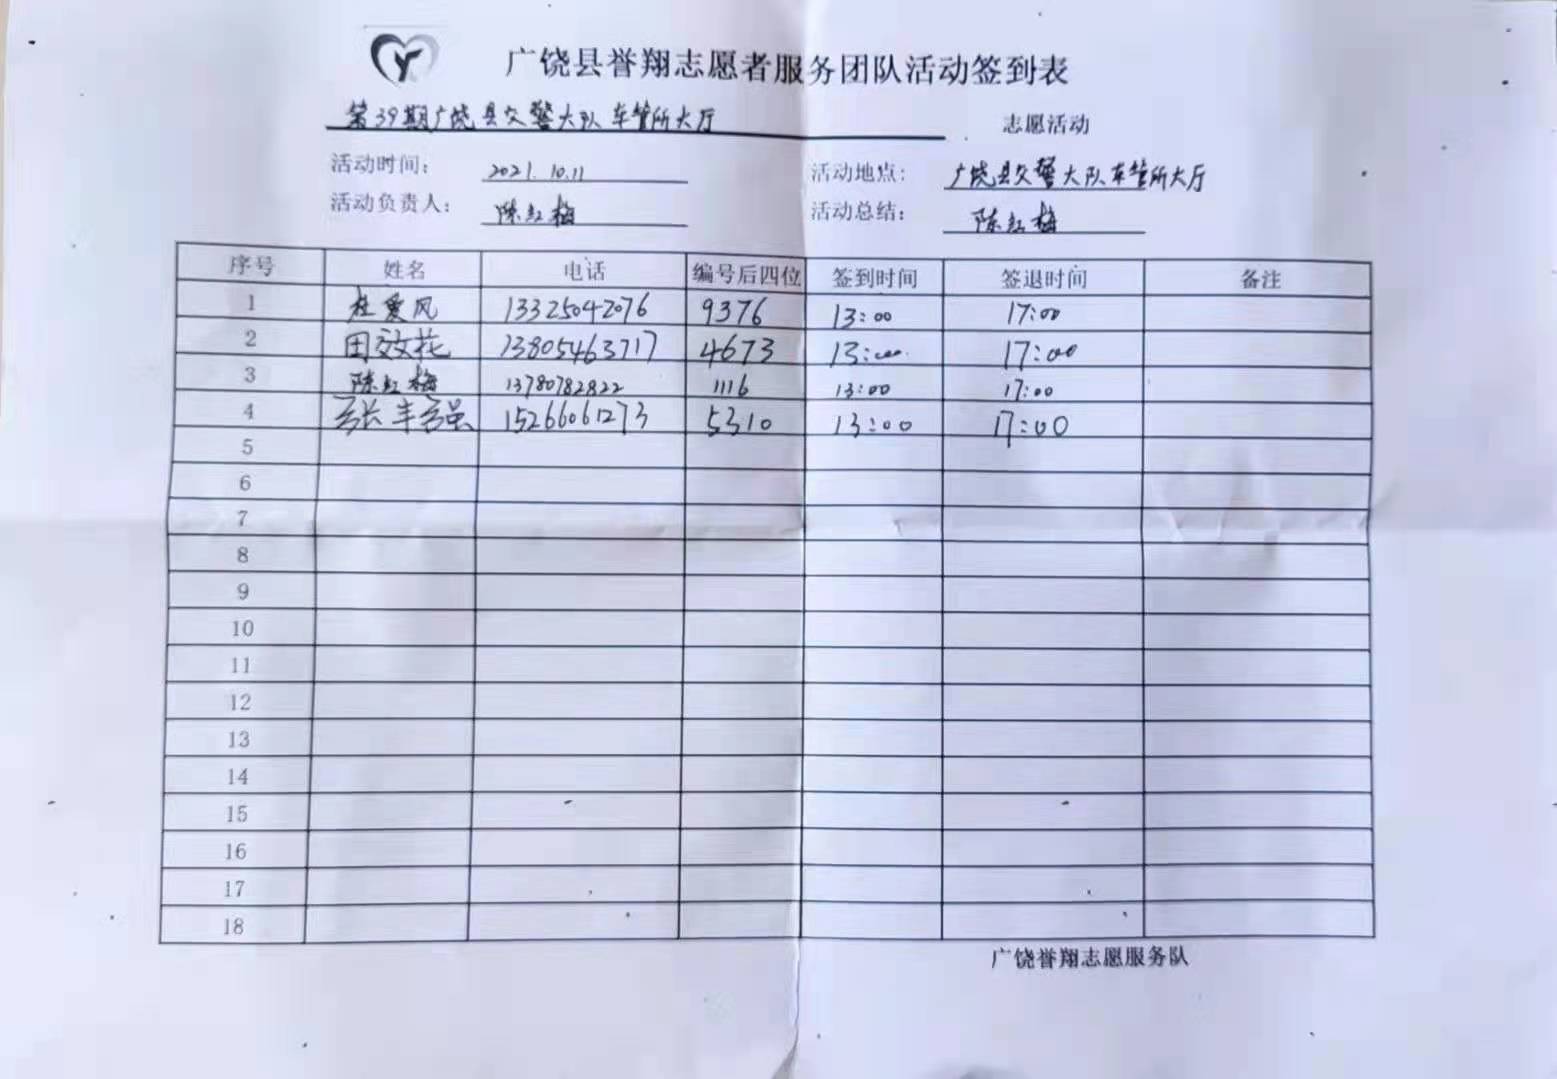 广饶县誉翔志愿者服务团队活动签到表
第39期广饶县交警大队车管所大厅 志愿活动
活动时间: 2021.10.11 活动地点: 广饶县交警大队车管所大厅
活动负责人: 陈红梅 活动总结: 陈红梅
序号 姓名 电话 编号后四位 签到时间 签退时间 备注
1 杜爱风 13325042076 9376 13:00 17:00
2 田效花 13805463717 4673 13:00 17:00
3 陈红梅 13780782822 1116 13:00 17:00
4 张丰强 15266061273 5310 13:00 17:00
5
6
7
8
9
10
11
12
13
14
15
16
17
18
广饶誉翔志愿服务队